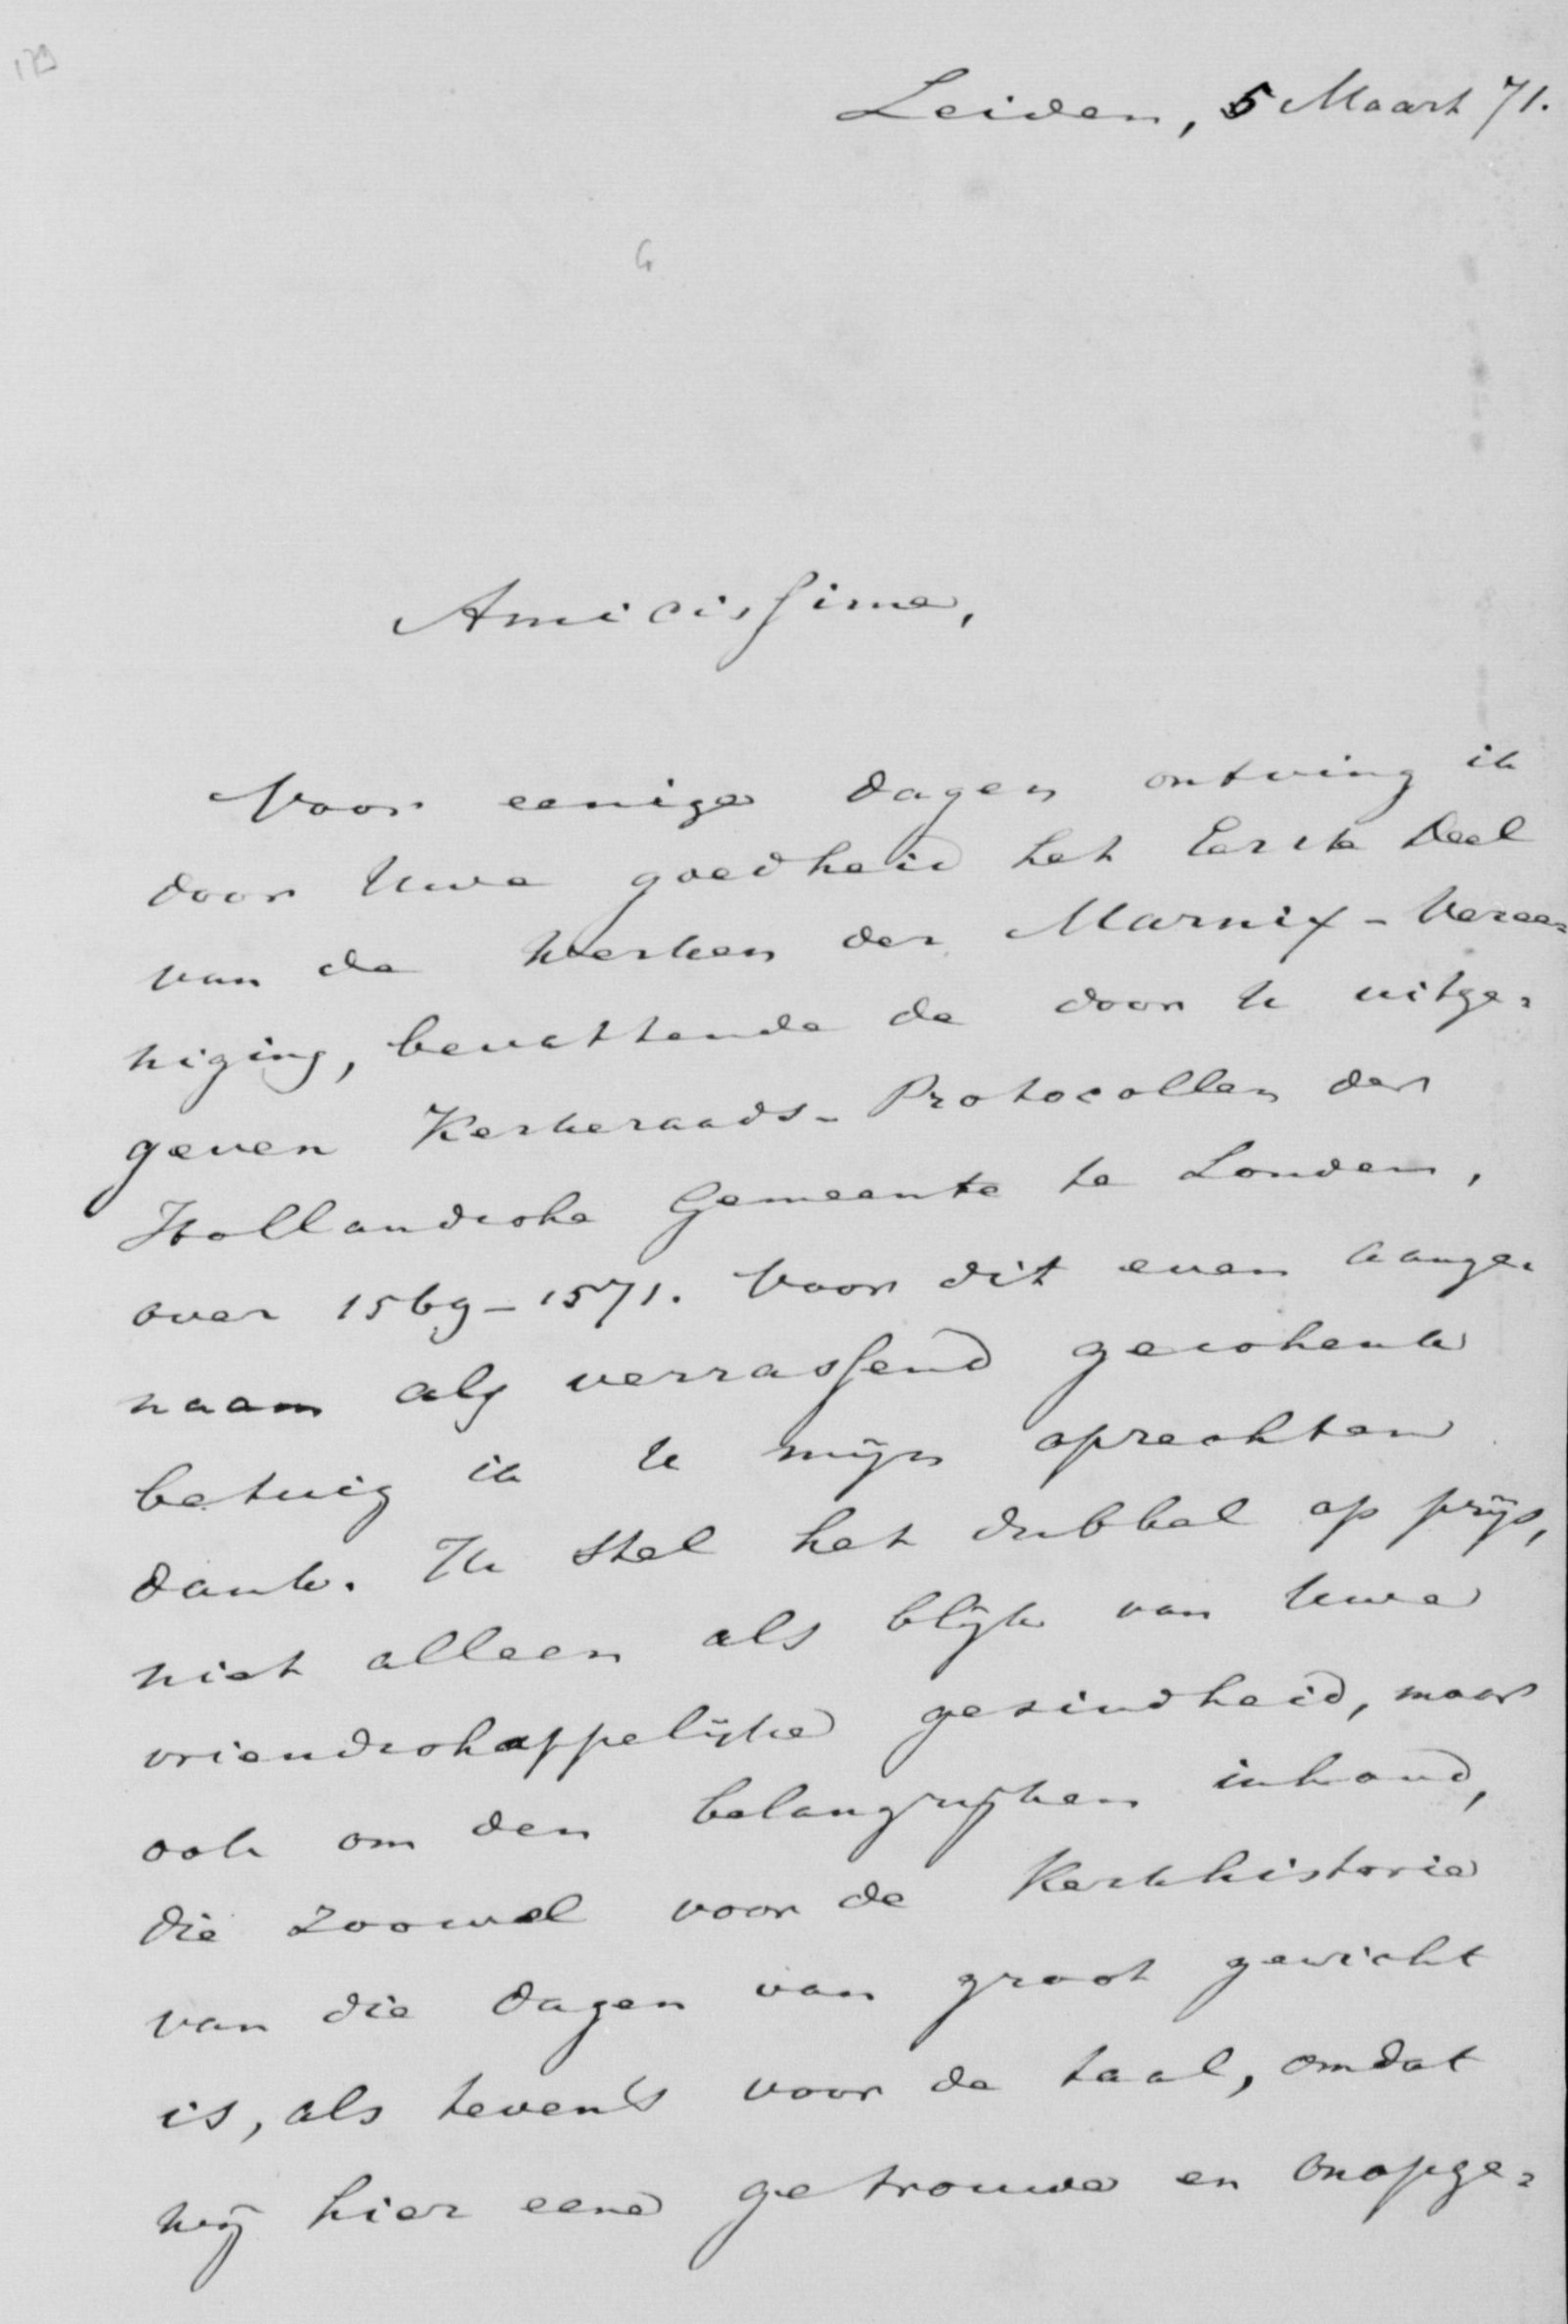 179
Leiden, 5 Maart 71.
G
Amicissime,
Voor eenige dagen ontving ik
door Uwe goedheid het Eerste Deel
van de Werken der Marnix-Veree=
niging, bevattende de door U uitge=
geven Kerkeraads-Protocollen der
Hollandsche Gemeente te Londen,
over 1569-1571. Voor dit even aange=
naam als verrassend geschenk
betuig ik U mijn oprechten
dank. Ik stel het dubbel op prijs,
niet alleen als blijk van Uwe
vriendschappelijke gezindheid, maar
ook om den belangrijken inhoud,
die zoowel voor de Kerkhistorie
van die dagen van groot gewicht
is, als tevens voor de taal, omdat
wij hier eene getrouwe en onopge=